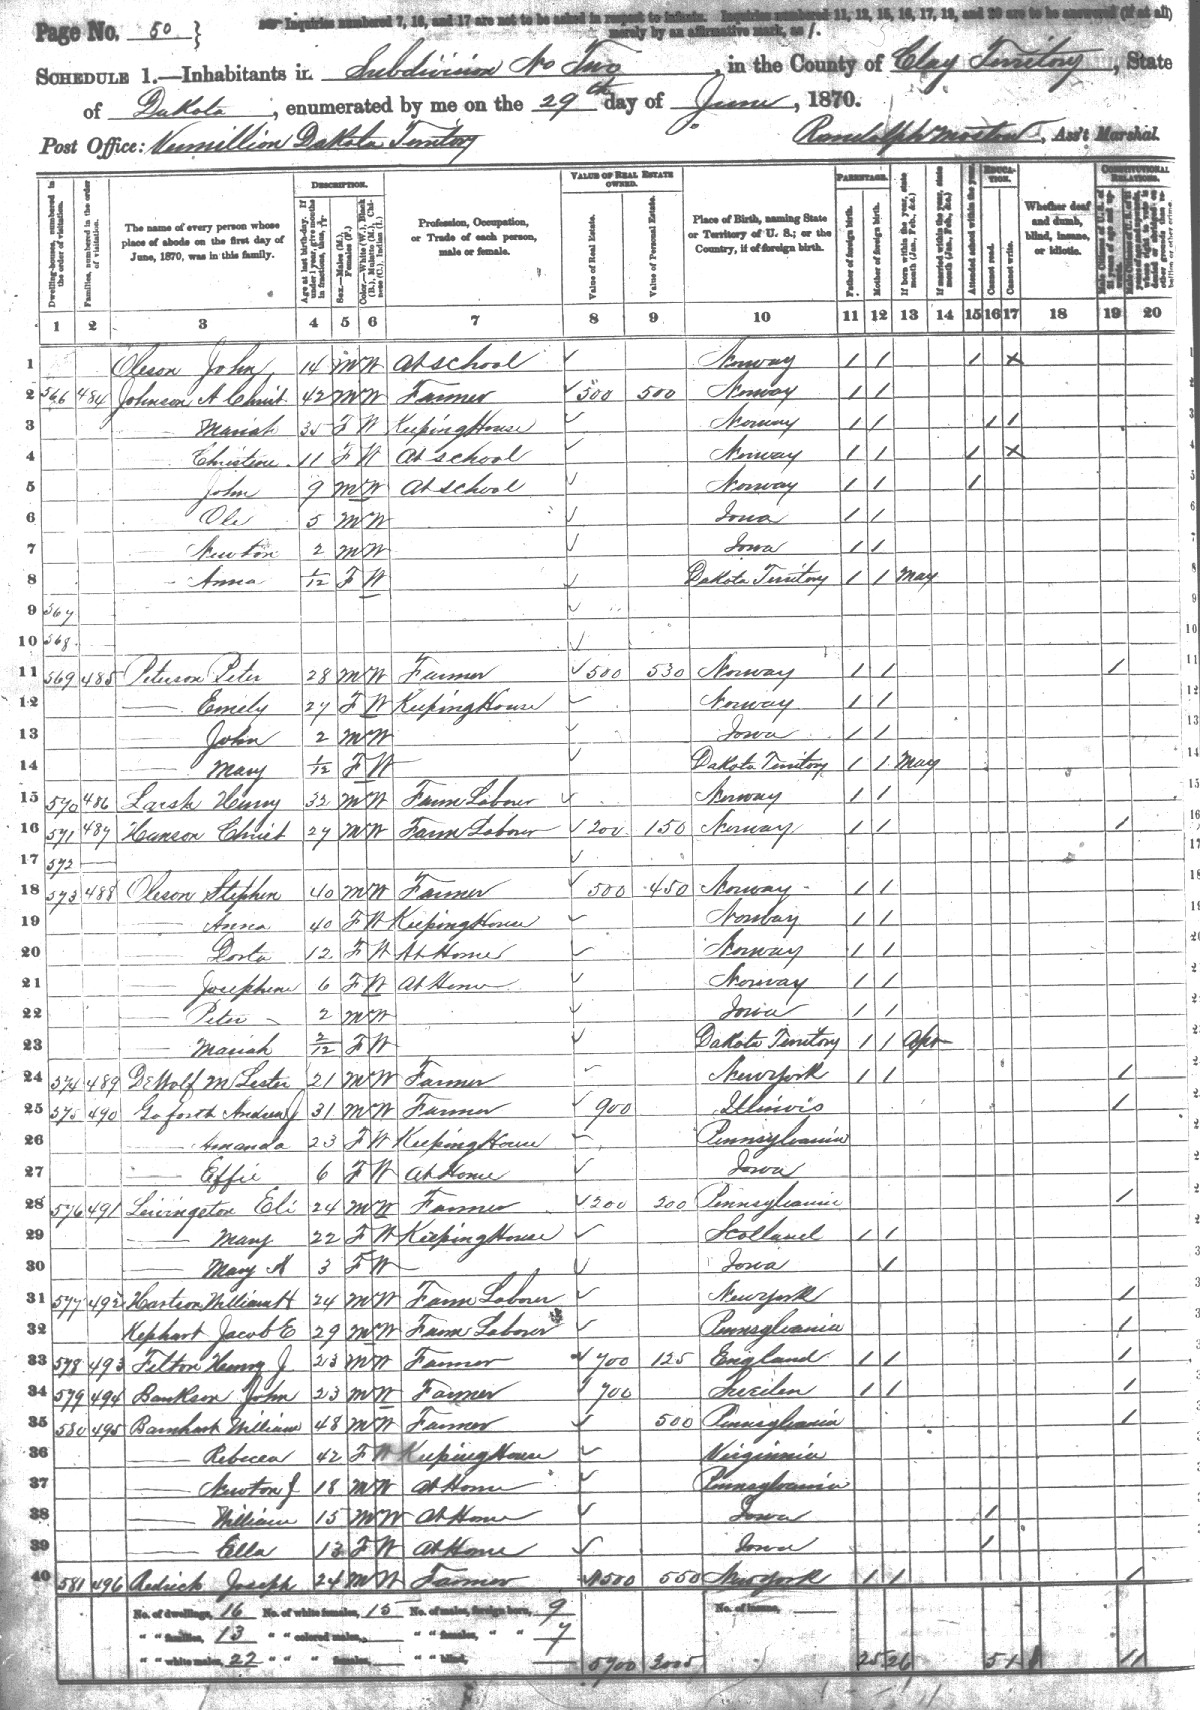 Page No. 50 }
Inquiries numbered 7, 16, and 17 are not to be asked in respect to infants. Inquiries numbered 11, 12, 15, 16, 17, 19, and 20 are to be answered (if at all)
merely by an affirmative mark, as /.
SCHEDULE 1.—Inhabitants in Subdivision No Two, in the County of Clay Territory, State
of Dakota, enumerated by me on the 29th day of June, 1870.
Post Office: Vermillion Dakota Territory Randolph, Ass't Marshal.
DESCRIPTION. VALUE OF REAL ESTATE OWNED. PARENTAGE. EDUCATION. CONSTITUTIONAL RELATIONS.
Dwelling-houses, numbered in the order of visitation.
Families, numbered in the order of visitation.
The name of every person whose place of abode on the first day of June, 1870, was in this family.
Age at last birth-day. If under 1 year, give months in fractions, thus, 3/12
Sex.—Males (M.), Females (F.)
Color.—White (W.), Black (B.), Mulatto (M.), Chinese (C.), Indian (I.)
Profession, Occupation, or Trade of each person, male or female.
Value of Real Estate.
Value of Personal Estate.
Place of Birth, naming State or Territory of U. S.; or the Country, if of foreign birth.
Father of foreign birth.
Mother of foreign birth.
If born within the year, state month (Jan., Feb., &c.)
If married within the year, state month (Jan., Feb., &c.)
Attended school within the year.
Cannot read.
Cannot write.
Whether deaf and dumb, blind, insane, or idiotic.
1 2 3 4 5 6 7 8 9 10 11 12 13 14 15 16 17 18 19 20
1 Oleson John 14 M W At school ✓ Norway / / / x
2 566 484 Johnson A Christ 42 M W Farmer ✓ 500 500 Norway / /
3 — Mariah 35 F W Keeping House ✓ Norway / / / /
4 — Christine 11 F W At school ✓ Norway / / / x
5 — John 9 M W At school ✓ Norway / / /
6 — Ole 5 M W ✓ Iowa / /
7 — Newton 2 M W ✓ Iowa / /
8 — Anna 1/12 F W ✓ Dakota Territory / / May
9 567 ✓
10 568 ✓
11 569 485 Peterson Peter 28 M W Farmer ✓ 500 530 Norway / / /
12 — Emely 27 F W Keeping House ✓ Norway / /
13 — John 2 M W ✓ Iowa / /
14 — Mary 1/12 F W ✓ Dakota Territory / / May
15 570 486 Larsh Henry 32 M W Farm Laborer ✓ Norway / /
16 571 487 Hanson Christ 27 M W Farm Laborer ✓ 200 150 Norway / / /
17 572 — ✓
18 573 488 Oleson Stephen 40 M W Farmer ✓ 500 450 Norway / /
19 — Anna 40 F W Keeping House ✓ Norway / /
20 — Dorta 12 F W At Home ✓ Norway / /
21 — Josephine 6 F W At Home ✓ Norway / /
22 — Peter 2 M W ✓ Iowa / /
23 — Mariah 2/12 F W ✓ Dakota Territory / / Apr
24 574 489 DeWolf M Lester 21 M W Farmer ✓ New York / / /
25 575 490 Goforth Andrew J 31 M W Farmer ✓ 900 Illinois /
26 — Amanda 23 F W Keeping House ✓ Pennsylvania
27 — Effie 6 F W At Home ✓ Iowa
28 576 491 Leivingston Eli 24 M W Farmer ✓ 200 200 Pennsylvania /
29 — Mary 22 F W Keeping House ✓ Scotland / /
30 — Mary A 3 F W ✓ Iowa /
31 577 492 William H 24 M W Farm Laborer ✓ New York /
32 Kephart Jacob E 29 M W Farm Laborer ✓ Pennsylvania /
33 578 493 Felton Henry J 23 M W Farmer ✓ 700 125 England / / /
34 579 494 Bankson John 23 M W Farmer ✓ 700 / / /
35 580 495 Barnhart William 48 M W Farmer ✓ 500 Pennsylvania /
36 — Rebecca 42 F W Keeping House ✓ Virginnia
37 — Newton J 18 M W At Home ✓ Pennsylvania
38 — William 15 M W At Home ✓ Iowa /
39 — Ella 13 F W At Home ✓ Iowa /
40 581 496 Redrick Joseph 24 M W Farmer 500 550 New York / / /
No. of dwellings, 16 No. of white females, 15 No. of males, foreign born, 9 No. of insane, —
" " families, 13 " " colored males, — " " females, " " 7
" " white males, 22 " " " females, — " " blind, — 5700 3005 25 26 5 1 11